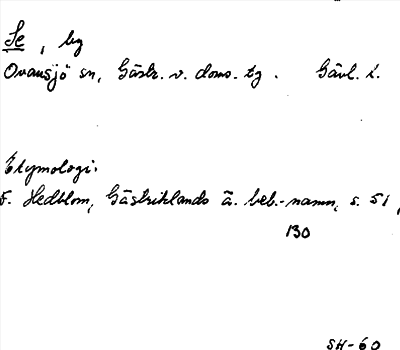 Se, by
Ovansjö sn, Gästr. v. doms. tg. Gävl. l.
Etymologi:
F. Hedblom, Gästriklands ä. beb.-namn, s. 51,
130
SH-60